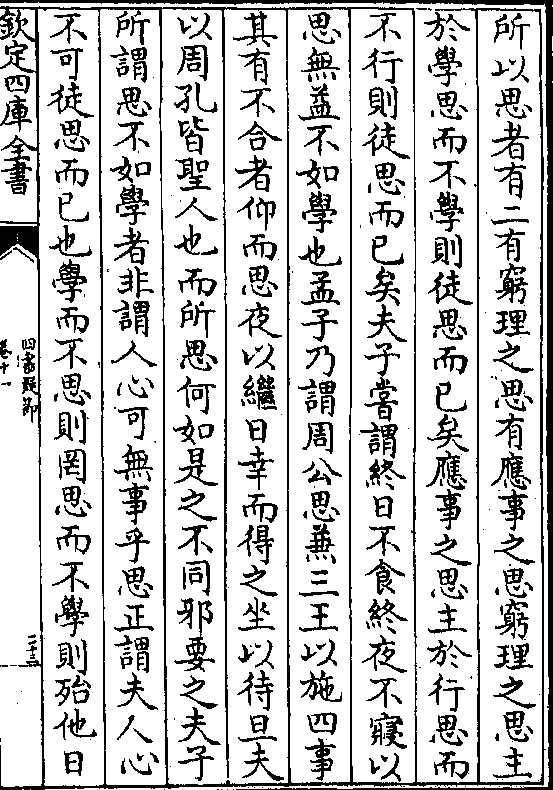 所以思者有二有窮理之思有應事之思窮理之思主
於學思而不學則徒思而已矣應事之思主於行思而
不行則徒思而已矣夫子嘗謂終日不食終夜不寢以
思無益不如學也孟子乃謂周公思兼三王以施四事
其有不合者仰而思夜以繼日幸而得之坐以待旦夫
以周孔皆聖人也而所思何如是之不同邪要之夫子
所謂思不如學者非謂人心可無事乎思正謂夫人心
不可徒思而已也學而不思則罔思而不學則殆他日
欽定四庫全書
四書疑節
卷十一
二十三